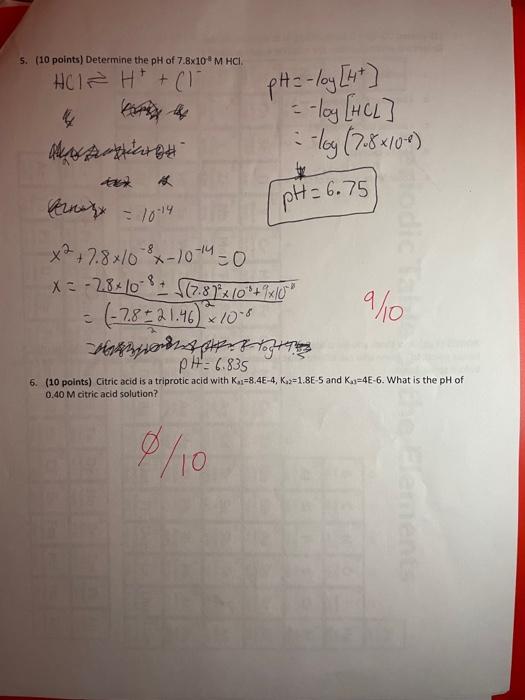 5. (10 points) Determine the pH of 7.8x10⁻⁸ M HCl.
HCl ⇌ H⁺ + Cl⁻
pH = -log[H⁺]
= -log[HCL]
= -log(7.8×10⁻⁸)
pH = 6.75
= 10⁻¹⁴
x² + 7.8×10⁻⁸x - 10⁻¹⁴ = 0
= (-7.8 ± 21.46) × 10⁻⁸
2
pH = 6.835
9/10
6. (10 points) Citric acid is a triprotic acid with Ka1=8.4E-4, Ka2=1.8E-5 and Ka3=4E-6. What is the pH of
0.40 M citric acid solution?
Ø/10